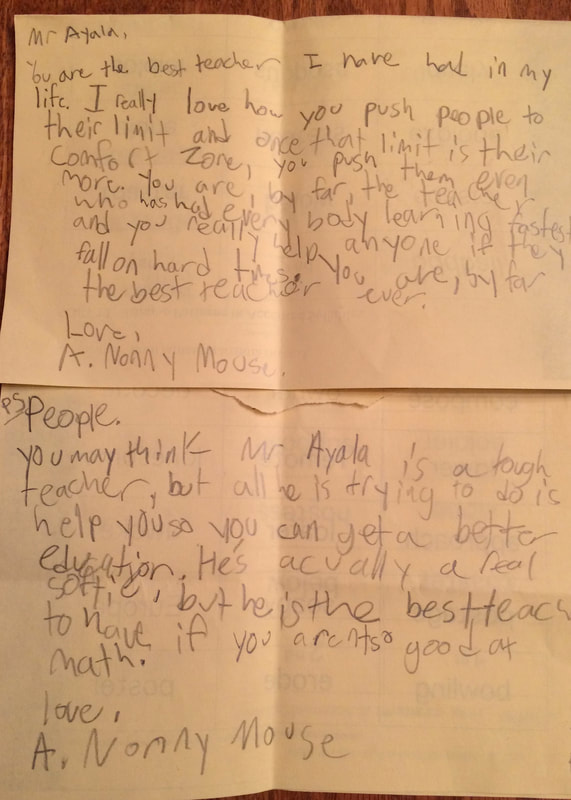 Mr Ayala,
You are the best teacher I have had in my
life. I really love how you push people to
their limit and once that limit is their
comfort zone, you push them even
more. You are, by far, the teacher
who has had every body learning fastest
and you really help anyone if they
fall on hard times. You are, by far
the best teacher ever.
Love,
A. Nonny Mouse.
PS People.
you may think Mr Ayala is a tough
teacher, but all he is trying to do is
help you so you can get a better
education. He's acually a real
softie, but he is the best teach
to have if you arent so good at
math.
love,
A. Nonny Mouse
bowling
erode
poste